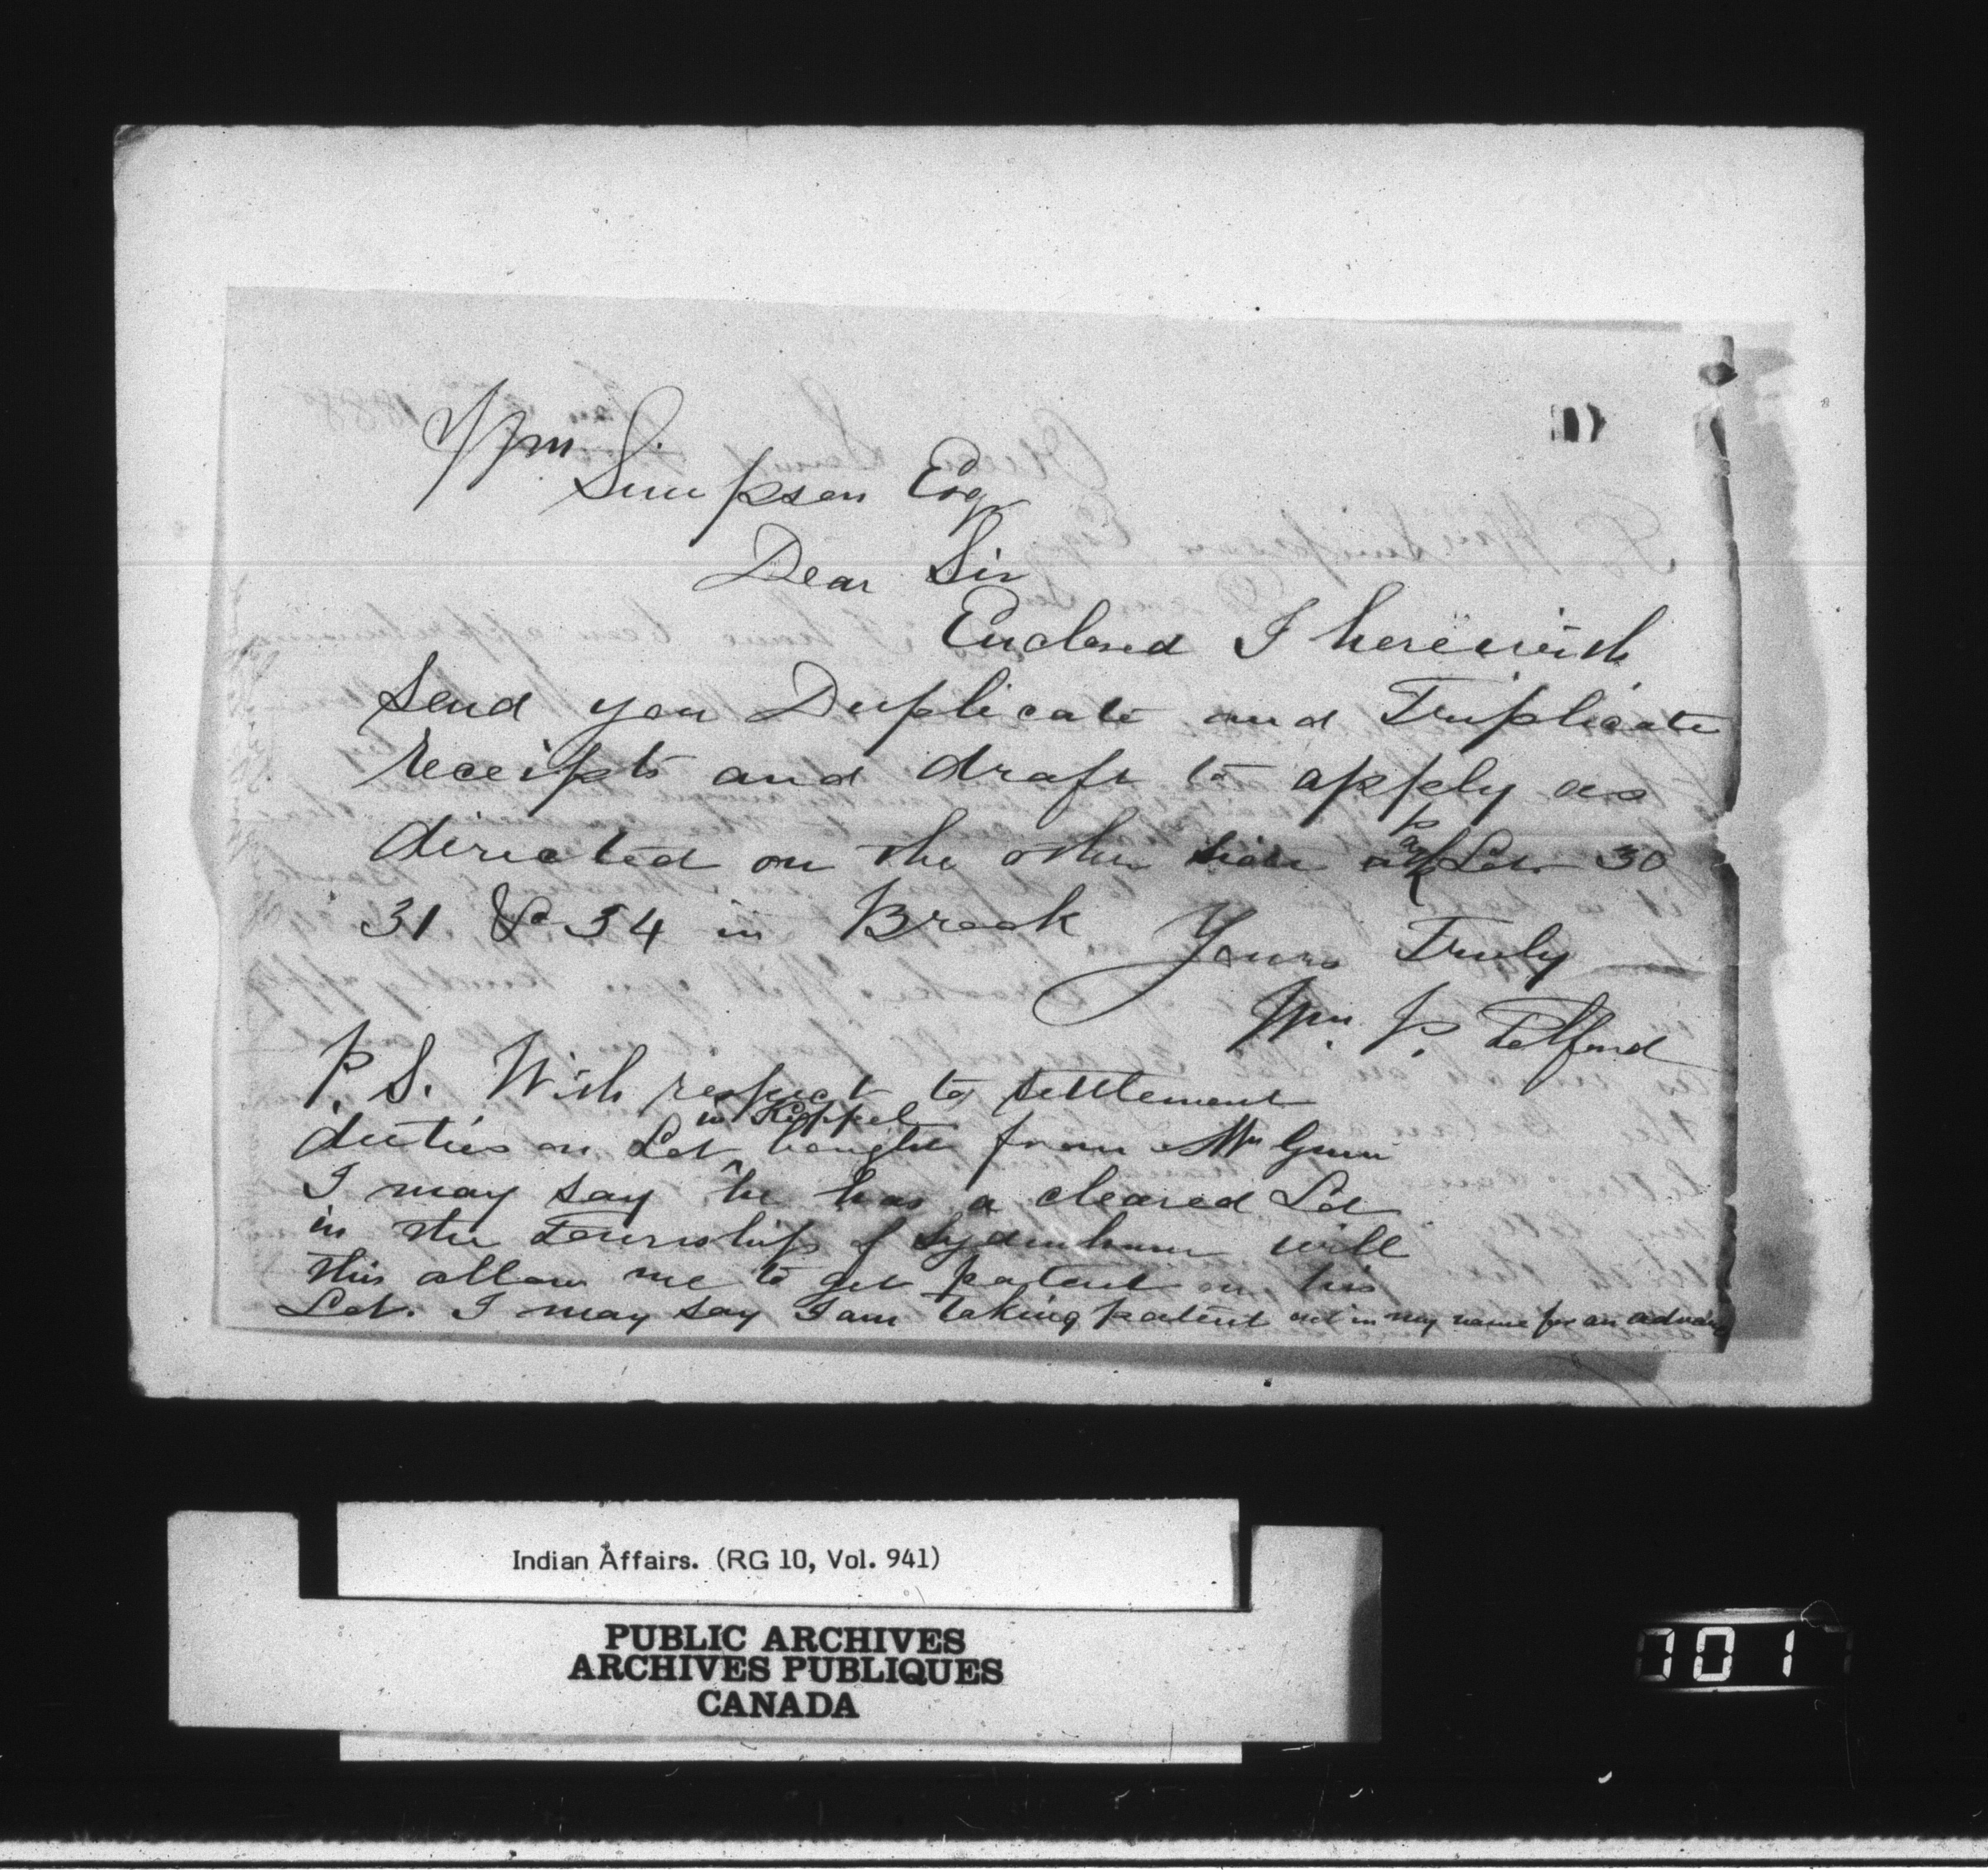 Wm Simpson Esq
Dear Sir
Enclosed I herewith
send you Duplicate and Triplicate
receipts and draft to apply as
directed on the other side Lot 30
31 & 34 in Brook
Yours Truly
Wm. P. Telford
P. S. With respect to settlement
duties on Lot in Keppel bought from Mr Gunn
I may say he has a cleared Lot
in the Township of Sydenham will
this allow me to get patent on his
Lot. I may say I am taking patent out in my name for an advance
Indian Affairs. (RG 10, Vol. 941)
PUBLIC ARCHIVES
ARCHIVES PUBLIQUES
CANADA
701